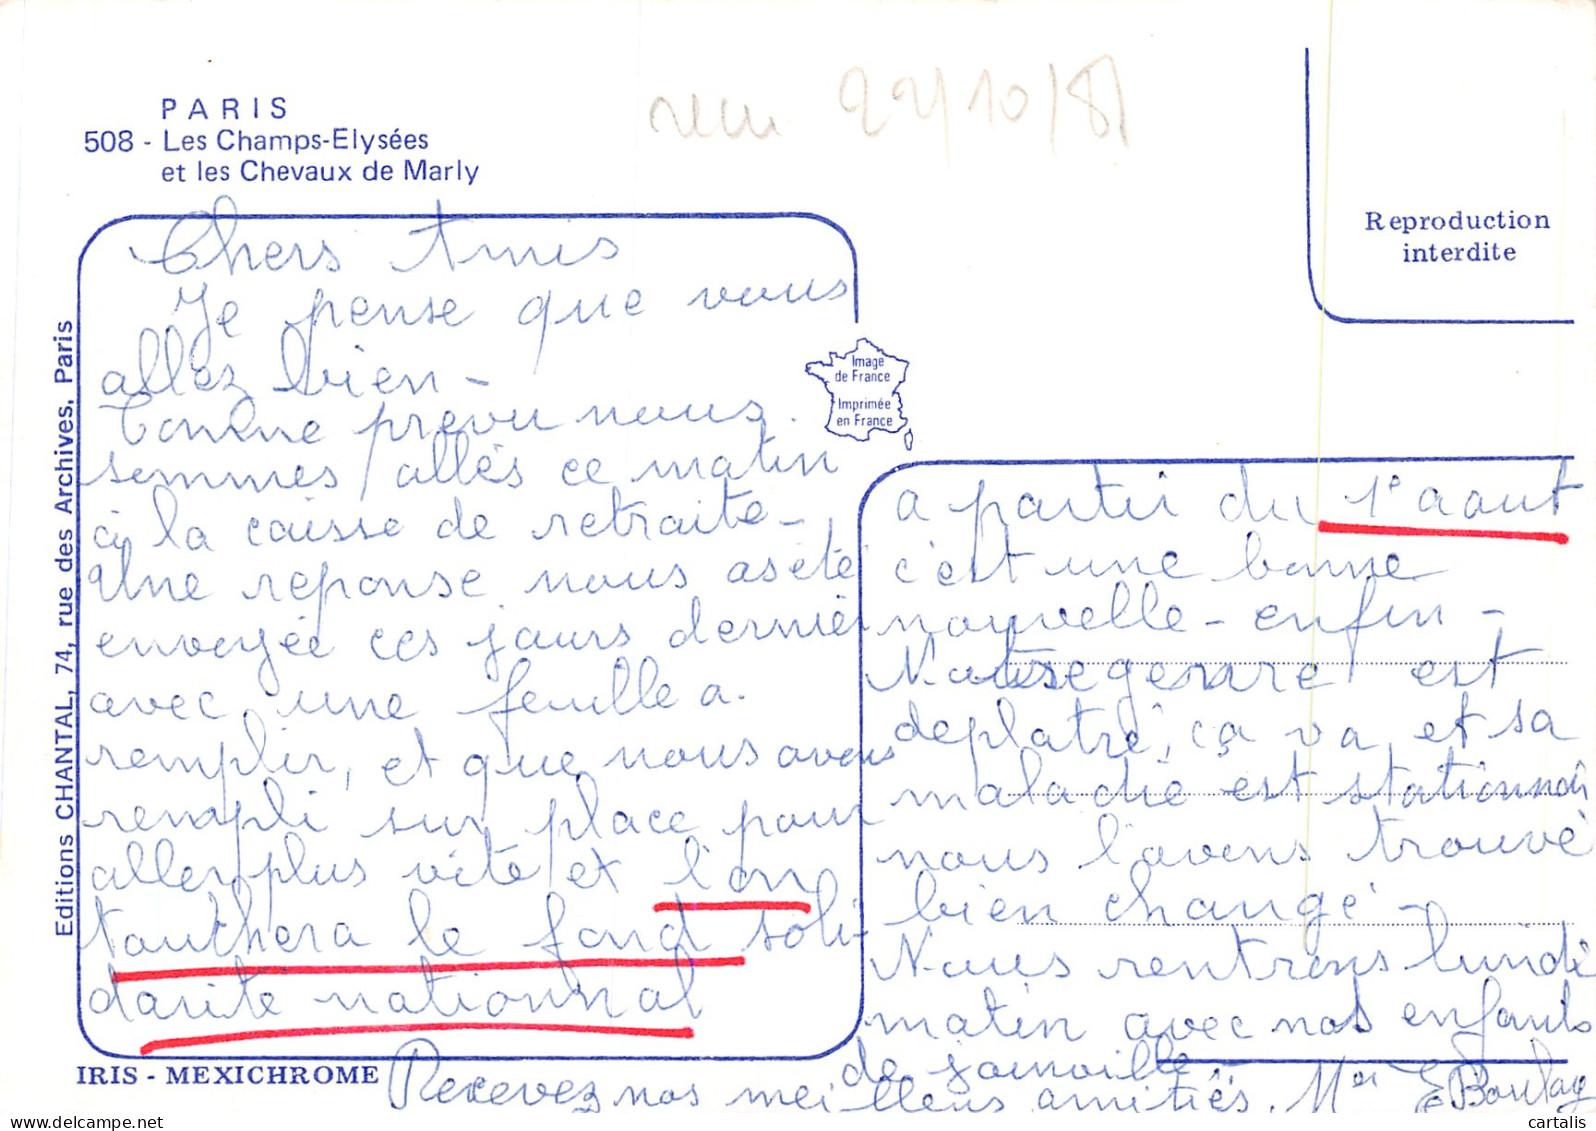 PARIS
508 - Les Champs-Elysées
et les Chevaux de Marly
reçu 22/10/81
Reproduction
interdite
Editions CHANTAL, 74, rue des Archives, Paris
Image
de France
Imprimée
en France
Chers Amis
Je pense que vous
allez bien -
Comme prevu nous
sommes allés ce matin
a la caisse de retraite -
Une reponse nous as été
envoyée ces jours derniè
avec une feuille a
remplir, et que nous avons
rempli sur place pour
aller plus vite et l'on
touchera le fond soli-
darité nationnal
a partir du 1° aout
c'est une bonne
nouvelle - enfin -
Notre genre est
deplatré, ça va, et sa
maladie est stationnai
nous l'avons trouvé
bien changé -
Nous rentrons lundi
matin avec nos enfants
de Joinville -
Recevez nos meilleurs amitiés. E Boulay
IRIS - MEXICHROME
delcampe.net
cartalis